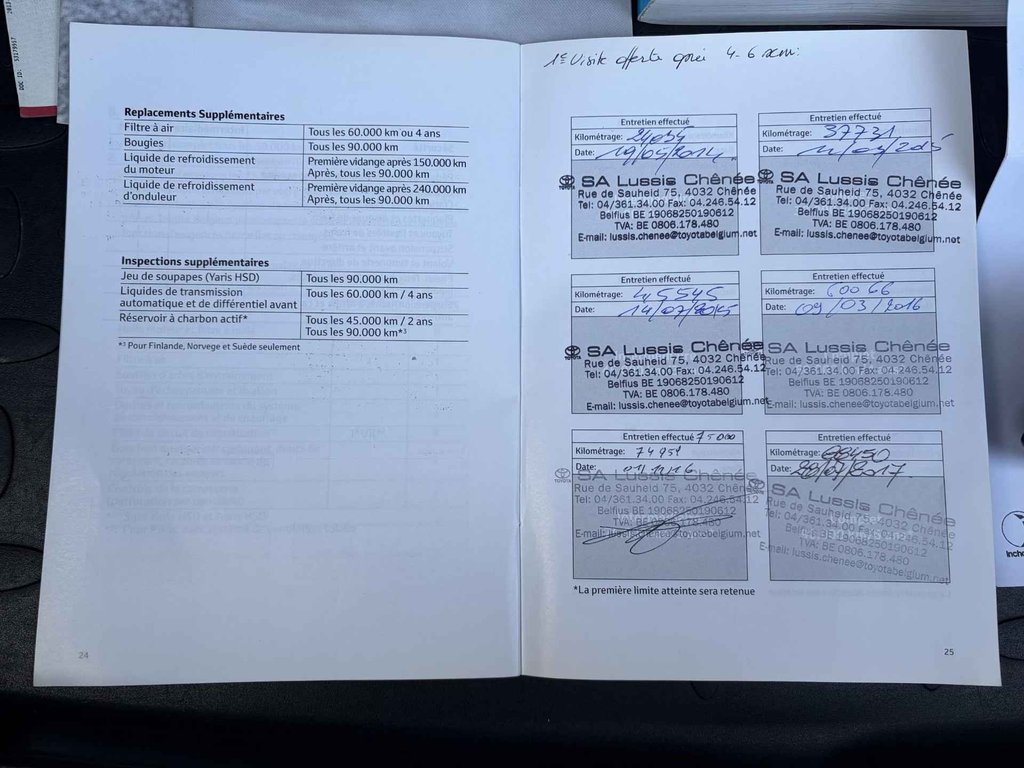 DOC ID: 53179957
Replacements Supplémentaires
Filtre à air Tous les 60.000 km ou 4 ans
Bougies Tous les 90.000 km
Liquide de refroidissement Première vidange après 150.000 km
du moteur Après, tous les 90.000 km
Liquide de refroidissement Première vidange après 240.000 km
d'onduleur Après, tous les 90.000 km
Inspections supplémentaires
Jeu de soupapes (Yaris HSD) Tous les 90.000 km
Liquides de transmission Tous les 60.000 km / 4 ans
automatique et de différentiel avant
Réservoir à charbon actif* Tous les 45.000 km / 2 ans
Tous les 90.000 km*³
*³ Pour Finlande, Norvege et Suède seulement
24
1e Visite offerte après 4-6 sem:
Entretien effectué
Kilométrage: 24034
Date: 19/05/2014
SA Lussis Chênée
Rue de Sauheid 75, 4032 Chênée
Tel: 04/361.34.00 Fax: 04.246.54.12
Belfius BE 19068250190612
TVA: BE 0806.178.480
E-mail: lussis.chenee@toyotabelgium.net
Entretien effectué
Kilométrage: 37731
Date: 11/04/2015
SA Lussis Chênée
Rue de Sauheid 75, 4032 Chênée
Tel: 04/361.34.00 Fax: 04.246.54.12
Belfius BE 19068250190612
TVA: BE 0806.178.480
E-mail: lussis.chenee@toyotabelgium.net
Entretien effectué
Kilométrage: 45545
Date: 14/07/2015
SA Lussis Chênée
Rue de Sauheid 75, 4032 Chênée
Tel: 04/361.34.00 Fax: 04.246.54.12
Belfius BE 19068250190612
TVA: BE 0806.178.480
E-mail: lussis.chenee@toyotabelgium.net
Entretien effectué
Kilométrage: 60066
Date: 09/03/2016
SA Lussis Chênée
Rue de Sauheid 75, 4032 Chênée
Tel: 04/361.34.00 Fax: 04.246.54.12
Belfius BE 19068250190612
TVA: BE 0806.178.480
E-mail: lussis.chenee@toyotabelgium.net
Entretien effectué 75000
Kilométrage: 74951
Date:
TOYOTA SA Lussis Chênée
Rue de Sauheid 75, 4032 Chênée
Tel: 04/361.34.00 Fax: 04.246.54.12
Belfius BE 19068250190612
TVA: BE 0806.178.480
E-mail: lussis.chenee@toyotabelgium.net
Entretien effectué
Kilométrage: 88450
Date: 28/07/2017
SA Lussis Chênée
Rue de Sauheid 75, 4032 Chênée
Tel: 04/361.34.00 Fax: 04.246.54.12
Belfius BE 19068250190612
TVA: BE 0806.178.480
E-mail: lussis.chenee@toyotabelgium.net
*La première limite atteinte sera retenue
25